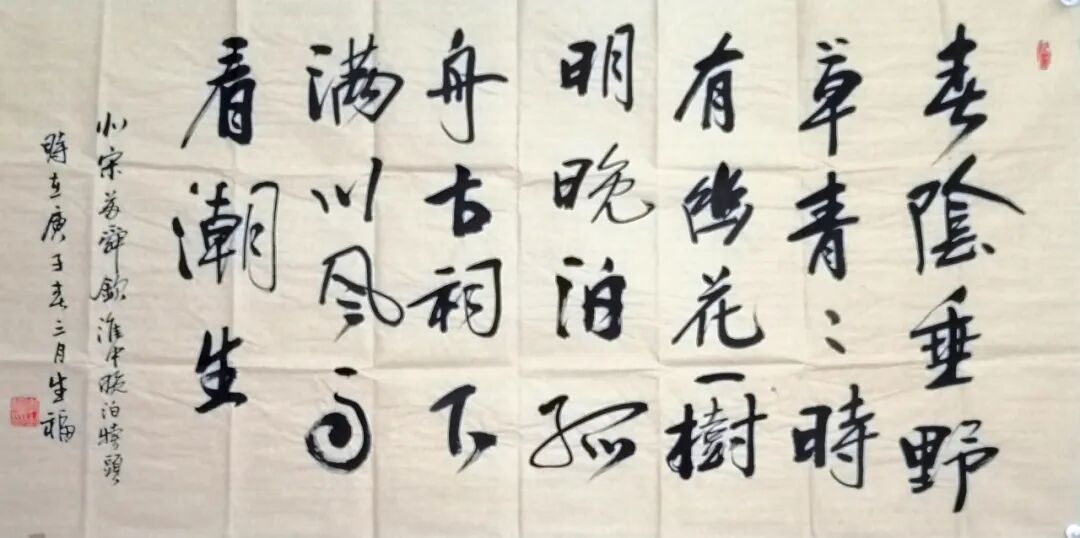 春陰垂野
草青〻時
有幽花一樹
明晚泊孤
舟古祠下
满川风雨
看潮生
宋苏舜钦淮中晚泊犊頭
時在庚子春三月生福